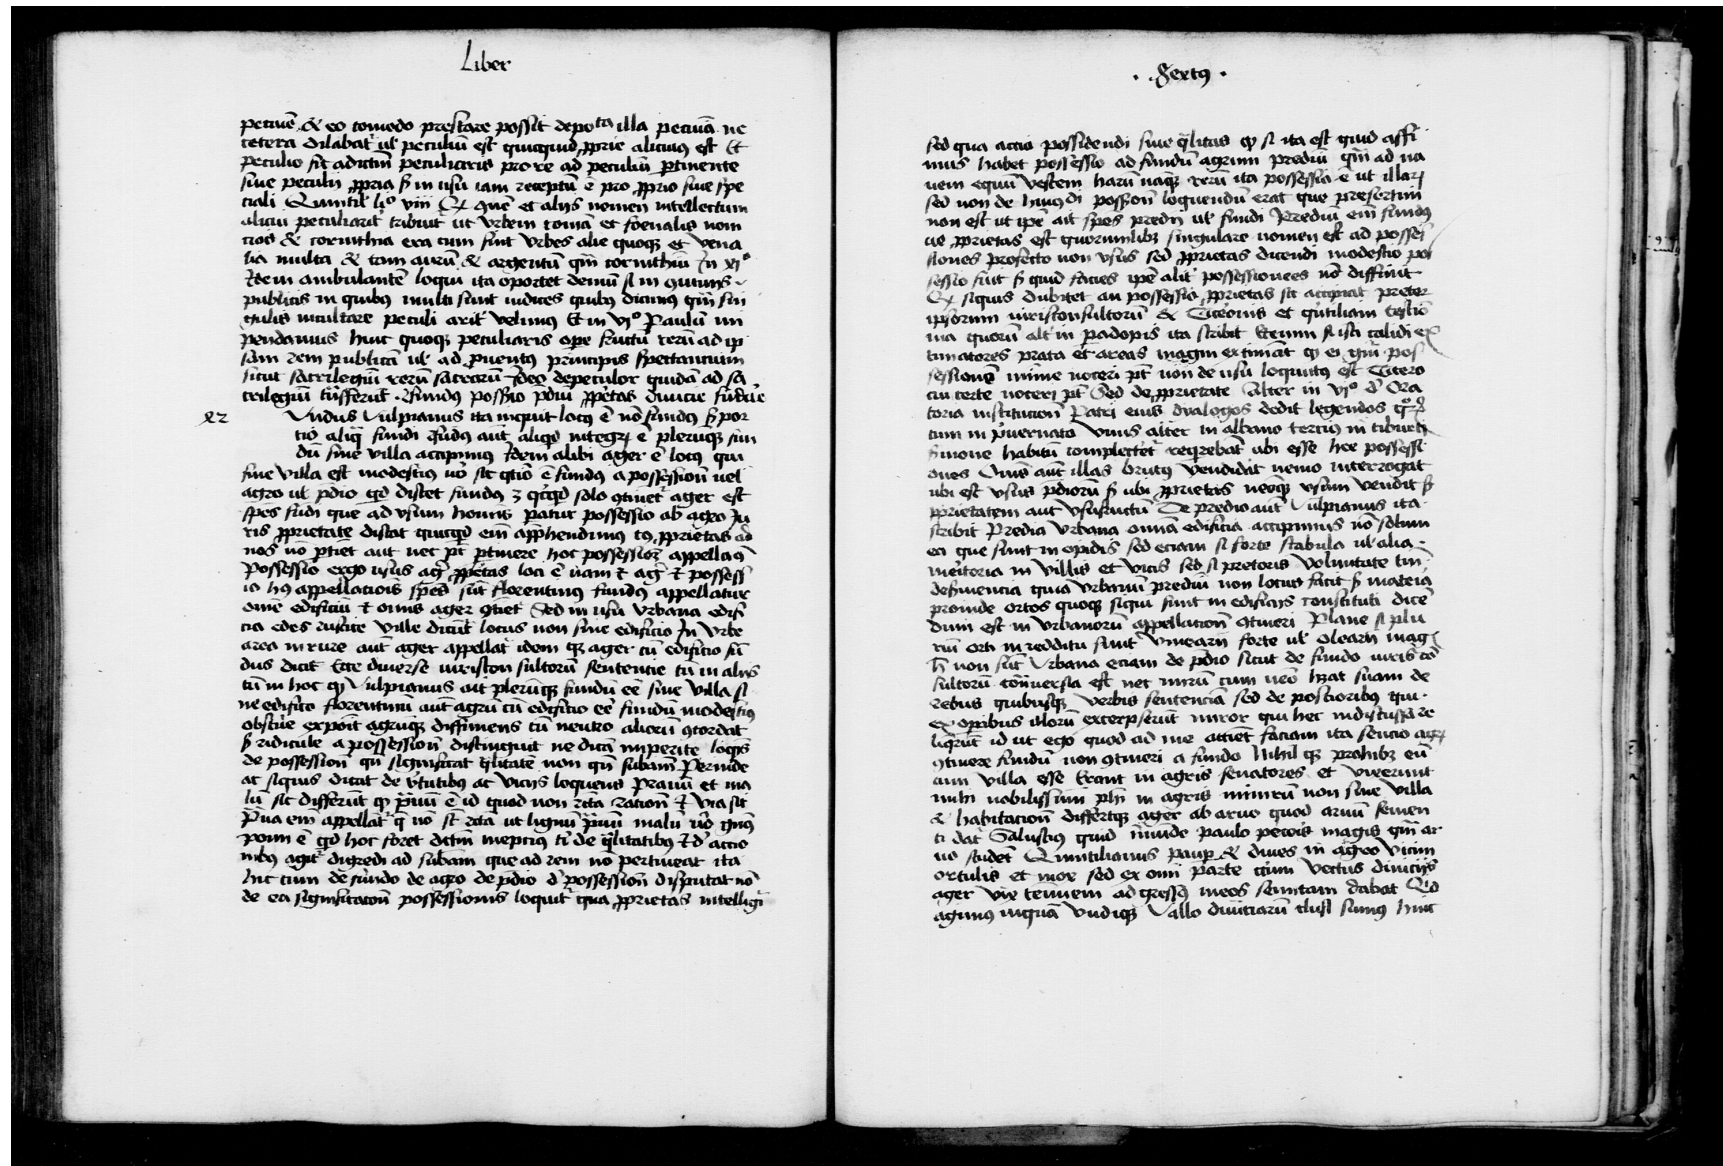 Liber
pecuniẽ & eo comodo prestare possit depota illa pecuniã ne
cetera dilabat᷑ ul᷑ peculiũ est quicquid ꝓprie alicuius est Et
peculio fit adictiũ peculiaris pro re ad peculiũ ꝑtinente
siue peculij ꝓpria ẞ in usũ iam receptũ ẽ pro ꝓprio siue spe
ciali Quintil᷑ lıͦ viij
alicui peculiarit᷑ tribuit᷑ ut Vrbem romã et foenalis nom
cios & corinthia era cum sint Vrbes alie quoqꝫ et Vena
lia multa & tam aurũ & argentũ qm̃ corinthiũ In xıͦ
Idem ambulantẽ loqui ita oportet demũ si in
publicis in quibꝰ multi sunt iudices quibꝰ dicimꝰ qm̃ sin
gulis inculcare peculi arit᷑ velimꝰ Et in vıͦ Paulũ im
pendamus hinc quoqꝫ peculiaris ope fructũ rerũ ad ip
sam rem publicã ul᷑ ad ꝓuentꝰ principis spectantium
sicut sacrilegiũ rerũ sacrarũ Ideo depeculor quidã ad sa
crilegiũ
xz Vndus Vulpianus ita inquit locꝰ ẽ nõ fundꝰ ẞ por
tio aliq̃ fundi fũdꝰ aũt aliqd̃ integrꝫ ẽ plerũqꝫ sin
dũ sine villa accipimꝰ Idem alibi ager ẽ locꝰ qui
sine villa est modestiꝰ uo᷑ sic q̃stio ẽ fundꝰ a possessiõn uel
agro ul᷑ p̃dio qd̃ distet fundꝰ ẽ q̃cqd̃ solo ꝯtinet᷑ ager est
spẽs fũdi que ad vsum hominis parat᷑ possessio ab agro Ju
ris ꝓprietate distat quicqd̃ em̃ app̃hendimus cꝰ ꝓprietas ad
nos nõ ꝑtiet aut nec pt̃ ꝑtinere hoc possessionẽ appellaꝰ
Possessio ergo usus ag̃ ꝓp̃etas loci ẽ nam
io hꝰ appellacionis spẽs sũt florentinꝰ fundꝰ appellatur
omẽ edificiũ Et omnis ager ꝯtiet᷑ Sed in usu Vrbana edifi
cia edes rustice Ville dicũt᷑ locus non sine edificio In Vrbe
area in rure aũt ager appellat᷑ idem qꝫ ager cũ edificio fũ
dus dicit᷑ Ecce diuerse iurisconsultorũ sentencie tũ in alijs
tũ in hoc qꝫ Vulpianus ait plerũqꝫ fundũ eẽ sine villa si
ne edificio florentinũ aũt agrũ cũ edificio eẽ fundũ modestiꝰ
obscure expoit agrũqꝫ diffiniens cũ neutro aliorũ ꝯcordat
ẞ ridicule a possessionẽ distinguit ne dicã imperite loq̃ns
de possessionẽ qñ significat q̃litatẽ non qñ subam̃ Perinde
ac siquis dicat de ṽtutibꝰ ac vicijs loquens Prauũ et ma
lũ sic differũt qꝫ p̃uũ ẽ id quod non recta ration Et via sit
P̃ua em̃ appellat᷑ q̃ nõ st̃ recta ut lignũ p̃uũ malũ
pomũ ẽ qd̃ hoc foret dictũ ineptiꝰ cũ de q̃litatibꝰ
nibꝰ agit᷑ digredi ad subam̃ que ad rem nõ pertineat ita
hic cum de fundo de agro de p̃dio d᷑ possessionẽ disputat nõ
de ea significacionẽ possessionis loquit᷑ qua ꝓprietas intelligi᷑
· Sextꝰ ·
sed qua actio possidendi siue q̃litas qꝫ si ita est quid affi
nius habet possessio ad fundũ agrum prediũ qm̃ ad na
uem equũ vestem harũ nãqꝫ rerũ ita possessio ẽ ut illarꝫ
sed non de huiꝰdi possiõn loquendũ erat que presertim
non est ut ipẽ ait spẽs predij ul᷑ fundi Prediũ em̃ fundꝰ
ue ꝓprietas est quorumlibꝫ singulare nomen est ad posses
siones profecto non vsus sed ꝓprietas dicendi modestio pos
sessio fuit ẞ quid facies ipẽ alit᷑ possessiones nõ diffinit
Qꝫ siquis dubitet an possessio ꝓprietas sit accipiat preter
ipsorum iurisconsultorũ & Ciceronis et q̃ntiliani testio
nia quorũ alt᷑ in padopis ita scribit Etenim si isti calidi ex
timatores prata et areas magni extimãt qꝫ ei
sessionũ mime noceri pt̃ non de usu loquitꝰ est Cicero
cui certe noceri pt̃ Sed de ꝓprietate Alter in vıͦ d᷑ Ora
toria institucionẽ Patri eius dyalogos dedit legendos
cum in p̃uernato vnus alter in albano tercius in tiburti
ẞmone habitũ complectet᷑ reqrebat᷑ ubi esse hee possessi
ones Omẽs aũt illas brutꝰ vendidat nemo interrogat
ubi est vsus p̃diorũ ẞ ubi ꝓprietas neqꝫ vsum vendit ẞ
ꝓprietatem aut vsufructũ De predio aũt Vulpianus ita
scribit Predia Vrbana omnia edificia accipimus nõ solum
ea que sunt in opidis sed eciam si forte stabula ul᷑ alia
meritoria in villis et vicis sed si pretoris Voluntate tm̃
deseruiencia quia vrbanũ prediũ non locus facit ẞ materia
proinde ortos quoqꝫ siqui sunt in edificijs constituti dicẽ
dum est in vrbanorũ appellacionẽ ꝯtineri Plane si plu
rim orti in redditu sunt Vinearij forte ul᷑ olearij mag
h̃ non sũt Vrbana eciam de p̃dio sicut de fundo iuris cõ
sultorũ conuersia est nec mirũ cum
rebus quibusqꝫ verbis sentenciã sed de postioribus qui
ex opibus illorũ excerpserũt miror qui hec indiscussa re
liq̃rũt id ut ego quod ad me attiet faciam ita sencio agrꝫ
ꝯtinere fundũ non ꝯtineri a fundo Nihil qꝫ prohibꝫ eũ
cum villa esse Erant in agris senatores et vixerunt
multi nobilissimi in agris nimirũ non sine villa
& habitacionẽ differtqꝫ ager ab aruo quod aruũ semen
ti dat᷑ Salustius quid paulo pecois magis qm̃ ar
uo studet᷑ Quintilianus paup & diues in agro vicini
ortulis et mox sed ex omi parte cum vectus diuicijs
ager vix tenuem ad gressꝰ meos semitam dabat Qd̃
agimꝰ inquã vndiqꝫ Vallo diuiciarũ clusi sumꝰ hinc